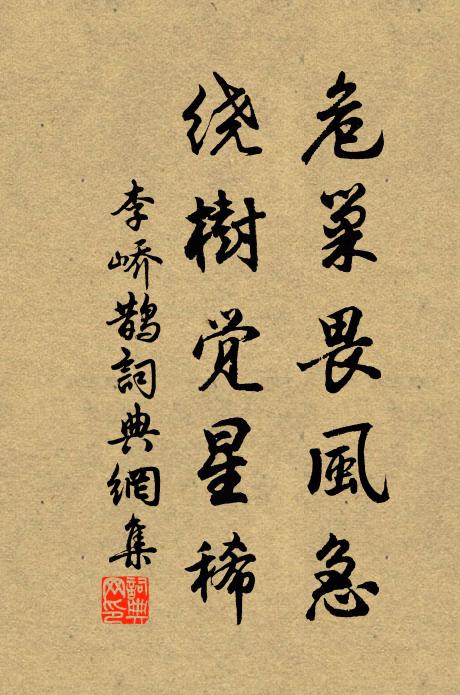 危巢畏風急
绕樹觉星稀
李峤鹊詞典網集
詞典网印